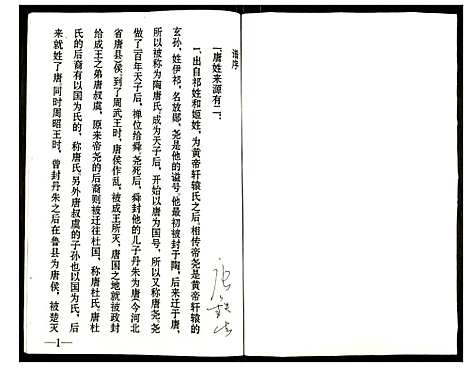 谱序
一、唐姓来源有二：
1、出自祁姓和姬姓，为黄帝轩辕氏之后。相传帝尧是黄帝轩辕的
玄孙，姓伊祁，名放勋，尧是他的谥号。他最初被封于陶，后来迁于唐，
所以被称为陶唐氏。成为天子后，开始以唐为国号，所以又称唐尧。尧
做了百年天子后，禅位给舜。尧死后，舜封他的儿子丹朱为唐（今河北
省唐县）侯。到了周武王时，唐侯作乱，被成王所灭，唐国之地就被改封
给成王之弟唐叔虞，原来帝尧的后裔则被迁往杜国，称唐杜氏。唐杜
氏的后裔有以国为氏的，称唐氏。另外唐叔虞的子孙也以国为氏，后
来就姓了唐。同时周昭王时，曾封丹朱之后在鲁县为唐侯，被楚灭
1